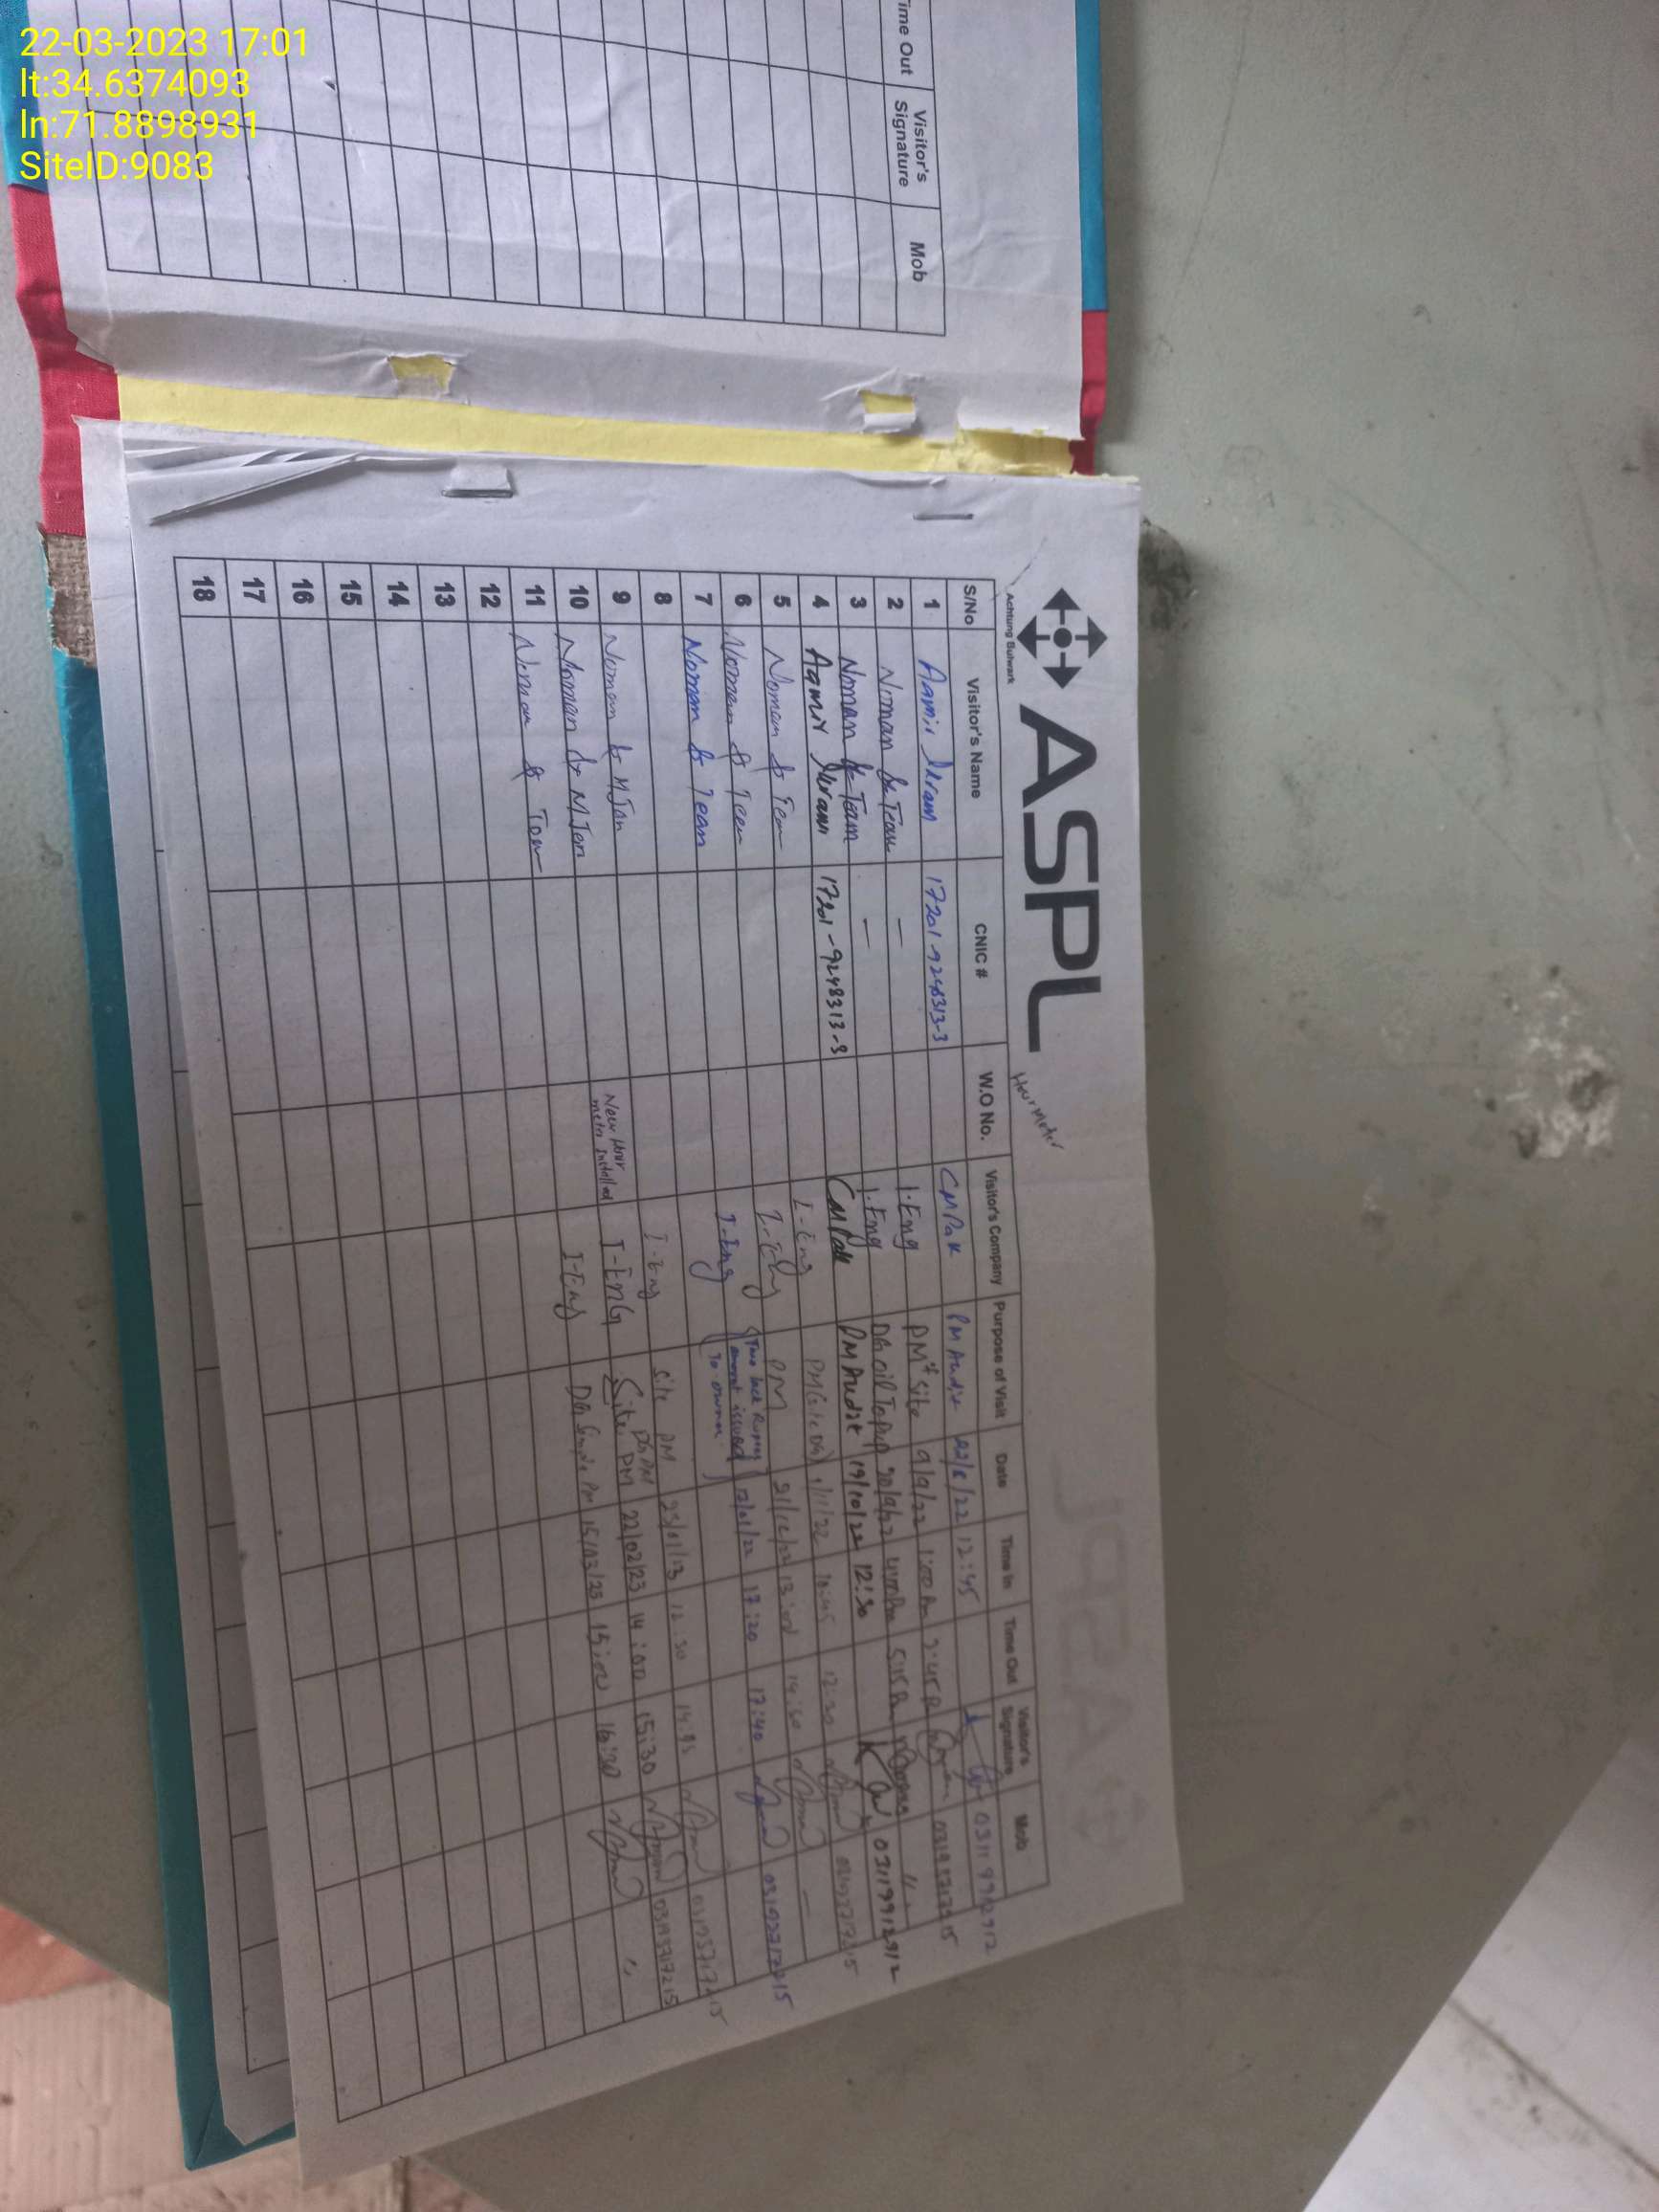 22-03-2023 17:01
lt:34.6374093
ln:71.8898931
SiteID:9083
Time Out Visitor's Signature Mob
ASPL
Achtung Bulwark
Hour Meter
S/No Visitor's Name CNIC # W.O No. Visitor's Company Purpose of Visit Date Time In Time Out Visitor's Signature Mob
1 Aamir Ikram 17201-9248313-3 CMPak PM Audit 22/6/22 12:45 03119912912
2 Noman & Team — I.Eng PM + Site 9/9/22 1:00 Pm 2:45 P
3 Noman & Team — I.Eng DG oil Topup 20/9/22 5:15 Pm "
4 Aamir Ikram 17201-9248313-3 CMPak PM Audit 19/10/22 12:30 03119912912
5 Noman & Team I-Eng PM 1/11/22 10:45 12:30
6 Noman & Team I-Eng PM 21/12/22 13:00 14:30 —
7 Noman & Team I-Eng Two lack Rupees amount issued To owner 12/01/22 17:20 17:40
8 I-Eng Site PM 25/01/23 12:30 14:45
9 Noman & M Jan New Hour meter installed I-ENG Site PM DG PM 22/02/23 14:00 15:30
10 Noman & M Jan I-Eng DG Simple PM 15/03/23 15:00 16:30 "
11 Noman & Team
12
13
14
15
16
17
18